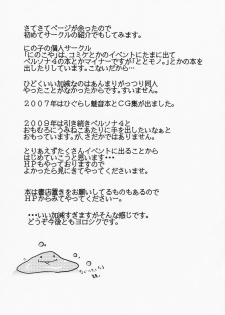 さてさてページが余ったので
初めてサークルの紹介でもしてみます。
にの子の個人サークル
「にのこや」は、コミケとかのイベントにたまに出て
ペルソナ４の本とかマイナーですが「ととモノ。」とかの本を
出したりしています。こなだいから…
ひどぐいい加減なのはあんまりがっつり同人
やったことがなかったからです。すいません。
２００７年はひぐらし魅音本とCG集が出ました。
２００９年は引き続きペルソナ４と
おもむろにうみねこあたりに手を出したいなぁと
おもっていますが、さだかではありません。
とりあえずたくさんイベントに出ることから
はじめていこうと思います・・・
HPもやっておりますので
よかったら見にきてやってくださいませ。
本は書店置きをお願いしてるものもあるので
HPからみてやってくださいー。
・・・いい加減すぎますがそんな感じです。
どうぞ今後ともヨロシクです。